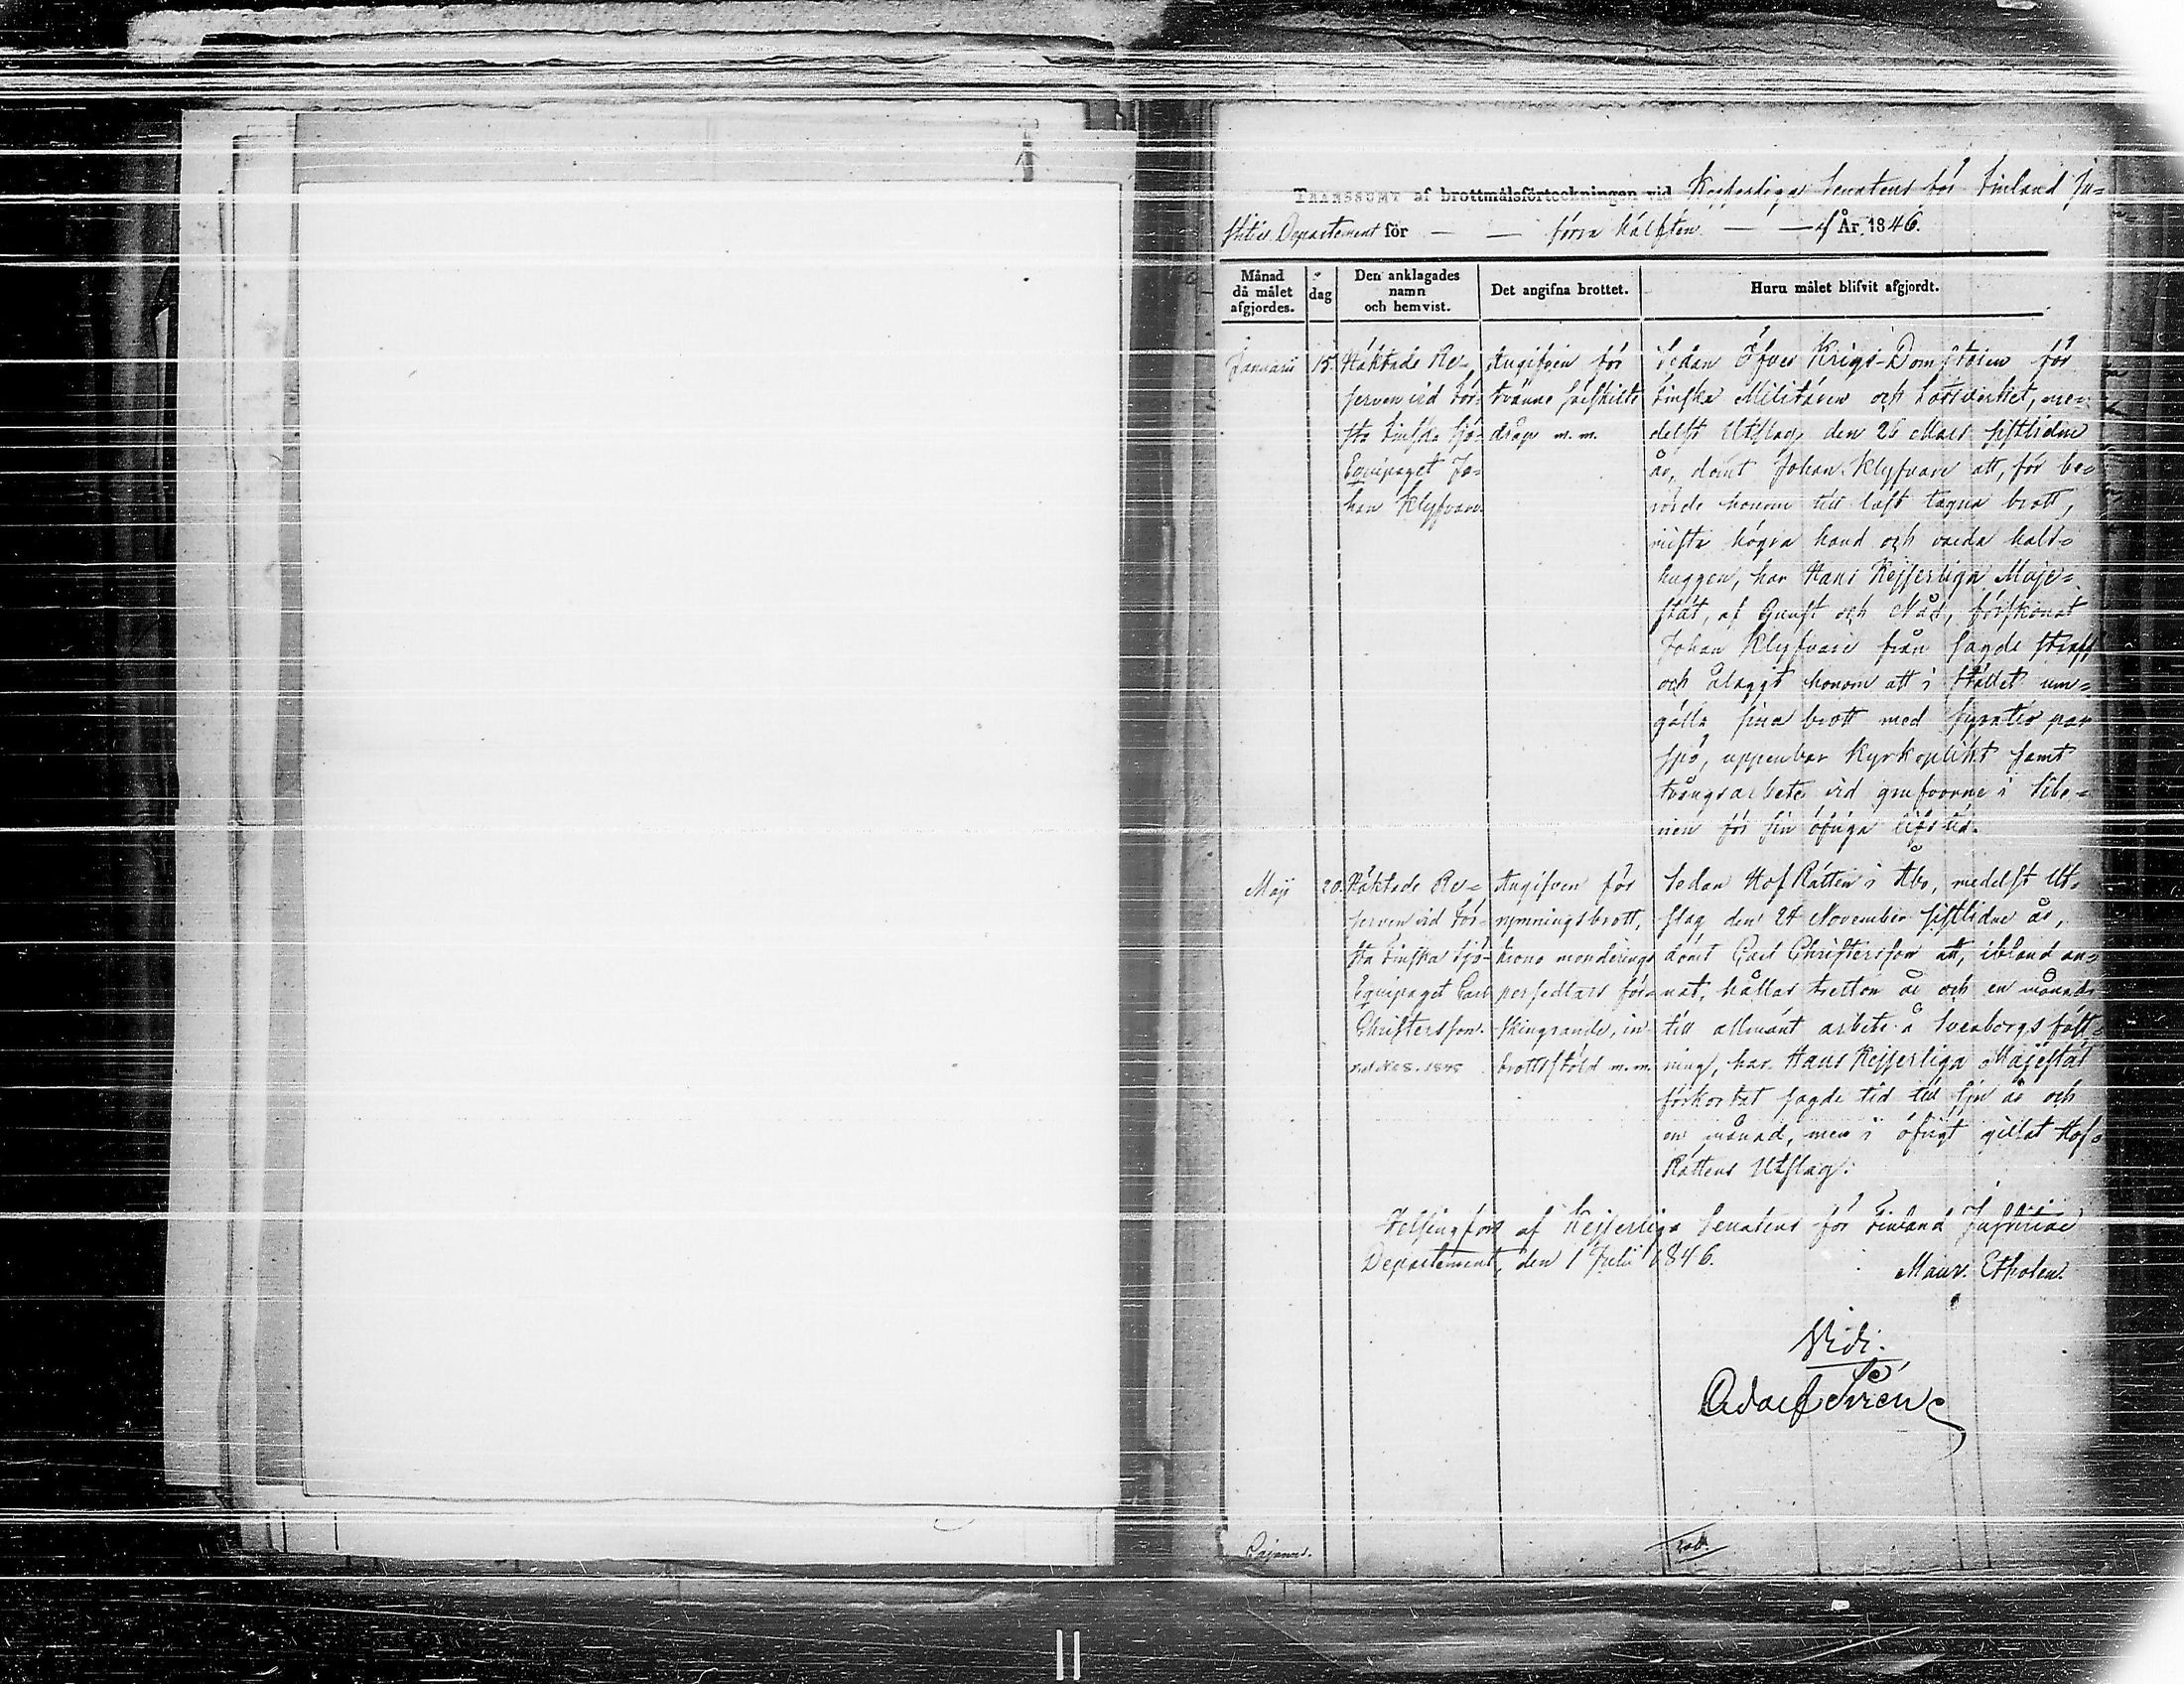 TRANSSUMT af brottmålsförteckningen vid Kejserliga Senatens för Finland Ju=
stitiæ Departement för — — förra hälften — — af År 1846.
Månad
då målet
afgjordes.
dag
Den anklagades
namn
och hemvist.
Det angifna brottet.
Huru målet blifvit afgjordt.
Januarii
15.
Häktade Re-
serven vid För-
sta Finska Sjö-
Equipaget Jo-
han Klyfvare.
Angifven för
tvänne särskilte
dråp m. m.
Sedan Öfver Krigs-Domstolen för
Finska Militären och Lotsverket, me-
delst Utslag den 26 Mars sistlidne
år, dömt Johan Klyfvare att, för be-
rörde honom till last tagne brott,
mista högra hand och varda hals=
huggen, har Hans Kejserliga Maje=
stät, af Gunst och Nåd, förskonat
Johan Klyfvare från sagde straff
och ålaggt honom att i stället um=
gälla sina brott med fyratio par
spö, uppenbar Kyrkoplikt samt
tvångsarbete vid grufvorne i Sibe=
rien för sin öfriga lifstid.
Maji
20.
Häktade Re=
serven vid För-
sta Finska Sjö-
Equipaget Carl
Christersson.
Angifven för
rymningsbrott,
krono monderings
persedlars för-
skingrande, in-
brottsstöld m. m.
Sedan HofRätten i Åbo, medelst Ut-
slag den 24 November sistlidne år,
dömt Carl Christersson att, ibland an-
nat, hållas tretton år och en månad
till allmänt arbete å Sveaborgs fäst-
ning, har Hans Kejserliga Majestät
förkortat sagde tid till sju år och
en månad, men i öfrigt gillat Hof=
Rättens Utslag.
Helsingfors af Kejserliga Senatens för Finland Justitiæ
Departement, den 1 Julii 1846.
Maur. Etholén.
Vidi.
Adolf